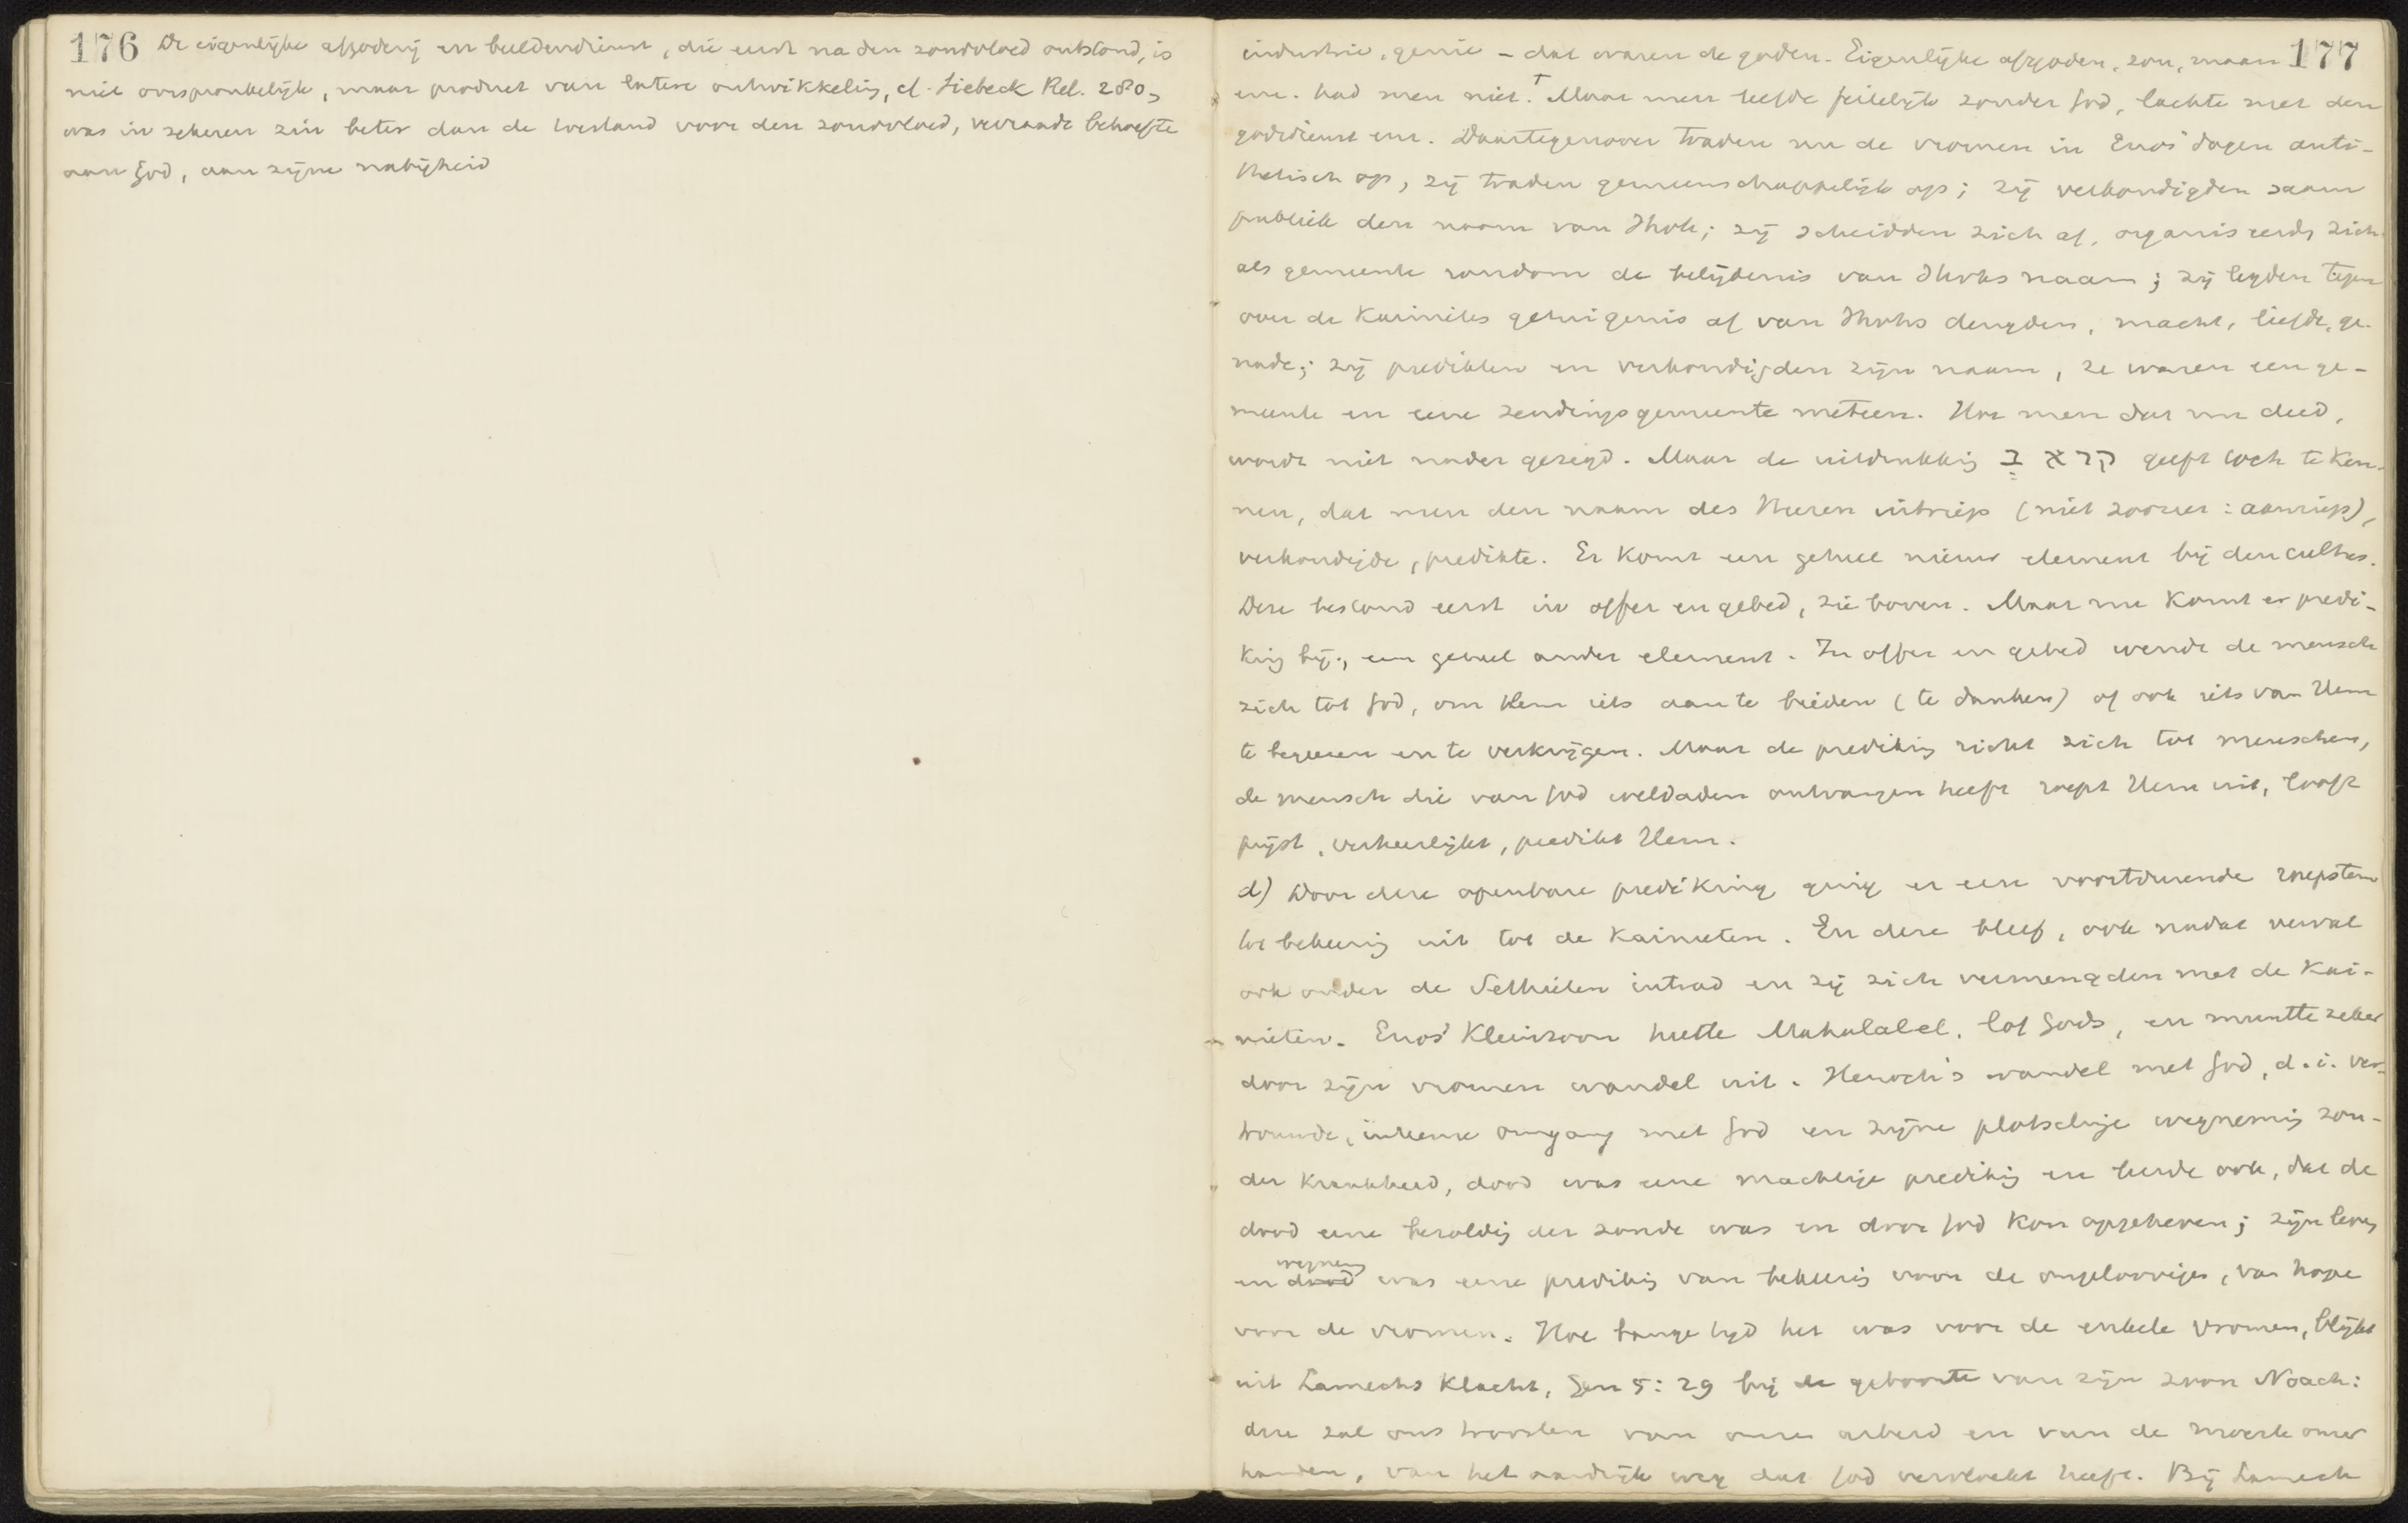 176 De eigenlijke afgoderij en beeldendienst, die eerst na den zondvloed ontstond, is
niet oorspronkelijk, maar product van latere ontwikkeling, cf. Liebeck Rel. 280,
was in zekeren zin beter dan de toestand voor den zondvloed, verraadt behoefte
aan God, aan zijne nabijheid
industrie, genie - dat waren de goden. Eigenlijke afgoden, zon, maan 177
enz. had men niet. † Maar men leefde feitelijk zonder God, lachte met den
godsdienst enz. Daartegenover traden nu de vromen in Enos' dagen anti-
thetisch op, zij traden gemeenschappelijk op; zij verkondigden saam
publiek den naam van Jhvh; zij scheidden zich af, organiseerden zich
als gemeente rondom de belijdenis van Jhvhs naam; zij legden tegen
over de Kainites getuigenis af van Jhvhs deugden, macht, liefde, ge-
nade; zij predikten en verkondigden zijn naam, ze waren een ge-
meente en eene zendingsgemeente meteen. Hoe men dat nu deed,
wordt niet nader gezegd. Maar de uitdrukking קרא ב geeft toch te ken-
nen, dat men den naam des Heeren uitriep (niet zoozeer: aanriep),
verkondigde, predikte. Er komt een geheel nieuw element bij den cultus.
Deze bestond eerst in offer en gebed, zie boven. Maar nu komt er predi-
king bij, een geheel ander element. In offer en gebed wendt de mensch
zich tot God, om Hem iets aan te bieden (te danken) of ook iets van Hem
te begeeren en te verkrijgen. Maar de prediking richt zich tot menschen,
de mensch die van God weldaden ontvangen heeft roept Hem uit, looft
prijst, verheerlijkt, predikt Hem.
d) Door deze openbare prediking ging er eene voortdurende roepstem
tot bekeering uit tot de Kainieten. En deze bleef, ook nadat verval
ook onder de Sethieten intrad en zij zich vermengden met de Kai-
nieten. Enos' kleinzoon heette Mahalalel, lof Gods, en muntte zeker
door zijn vromen wandel uit. Henoch's wandel met God, d.i. ver-
trouwde, intieme omgang met God en zijne plotselinge wegneming zon-
der krankheid, dood was eene machtige prediking en leerde ook, dat de
dood eene bezolding der zonde was en door God kon opgeheven; zijn leven
wegneming
en dood was eene prediking van bekeering voor de ongeloovigen, van hope
voor de vromen. Hoe bange tijd het was voor de enkele vromen, blijkt
uit Lamechs klacht, Gen 5:29 bij de geboorte van zijn zoon Noach:
deze zal ons troosten van onzen arbeid en van de smerte onzer
handen, van het aardrijk weg dat God vervloekt heeft. Bij Lamech